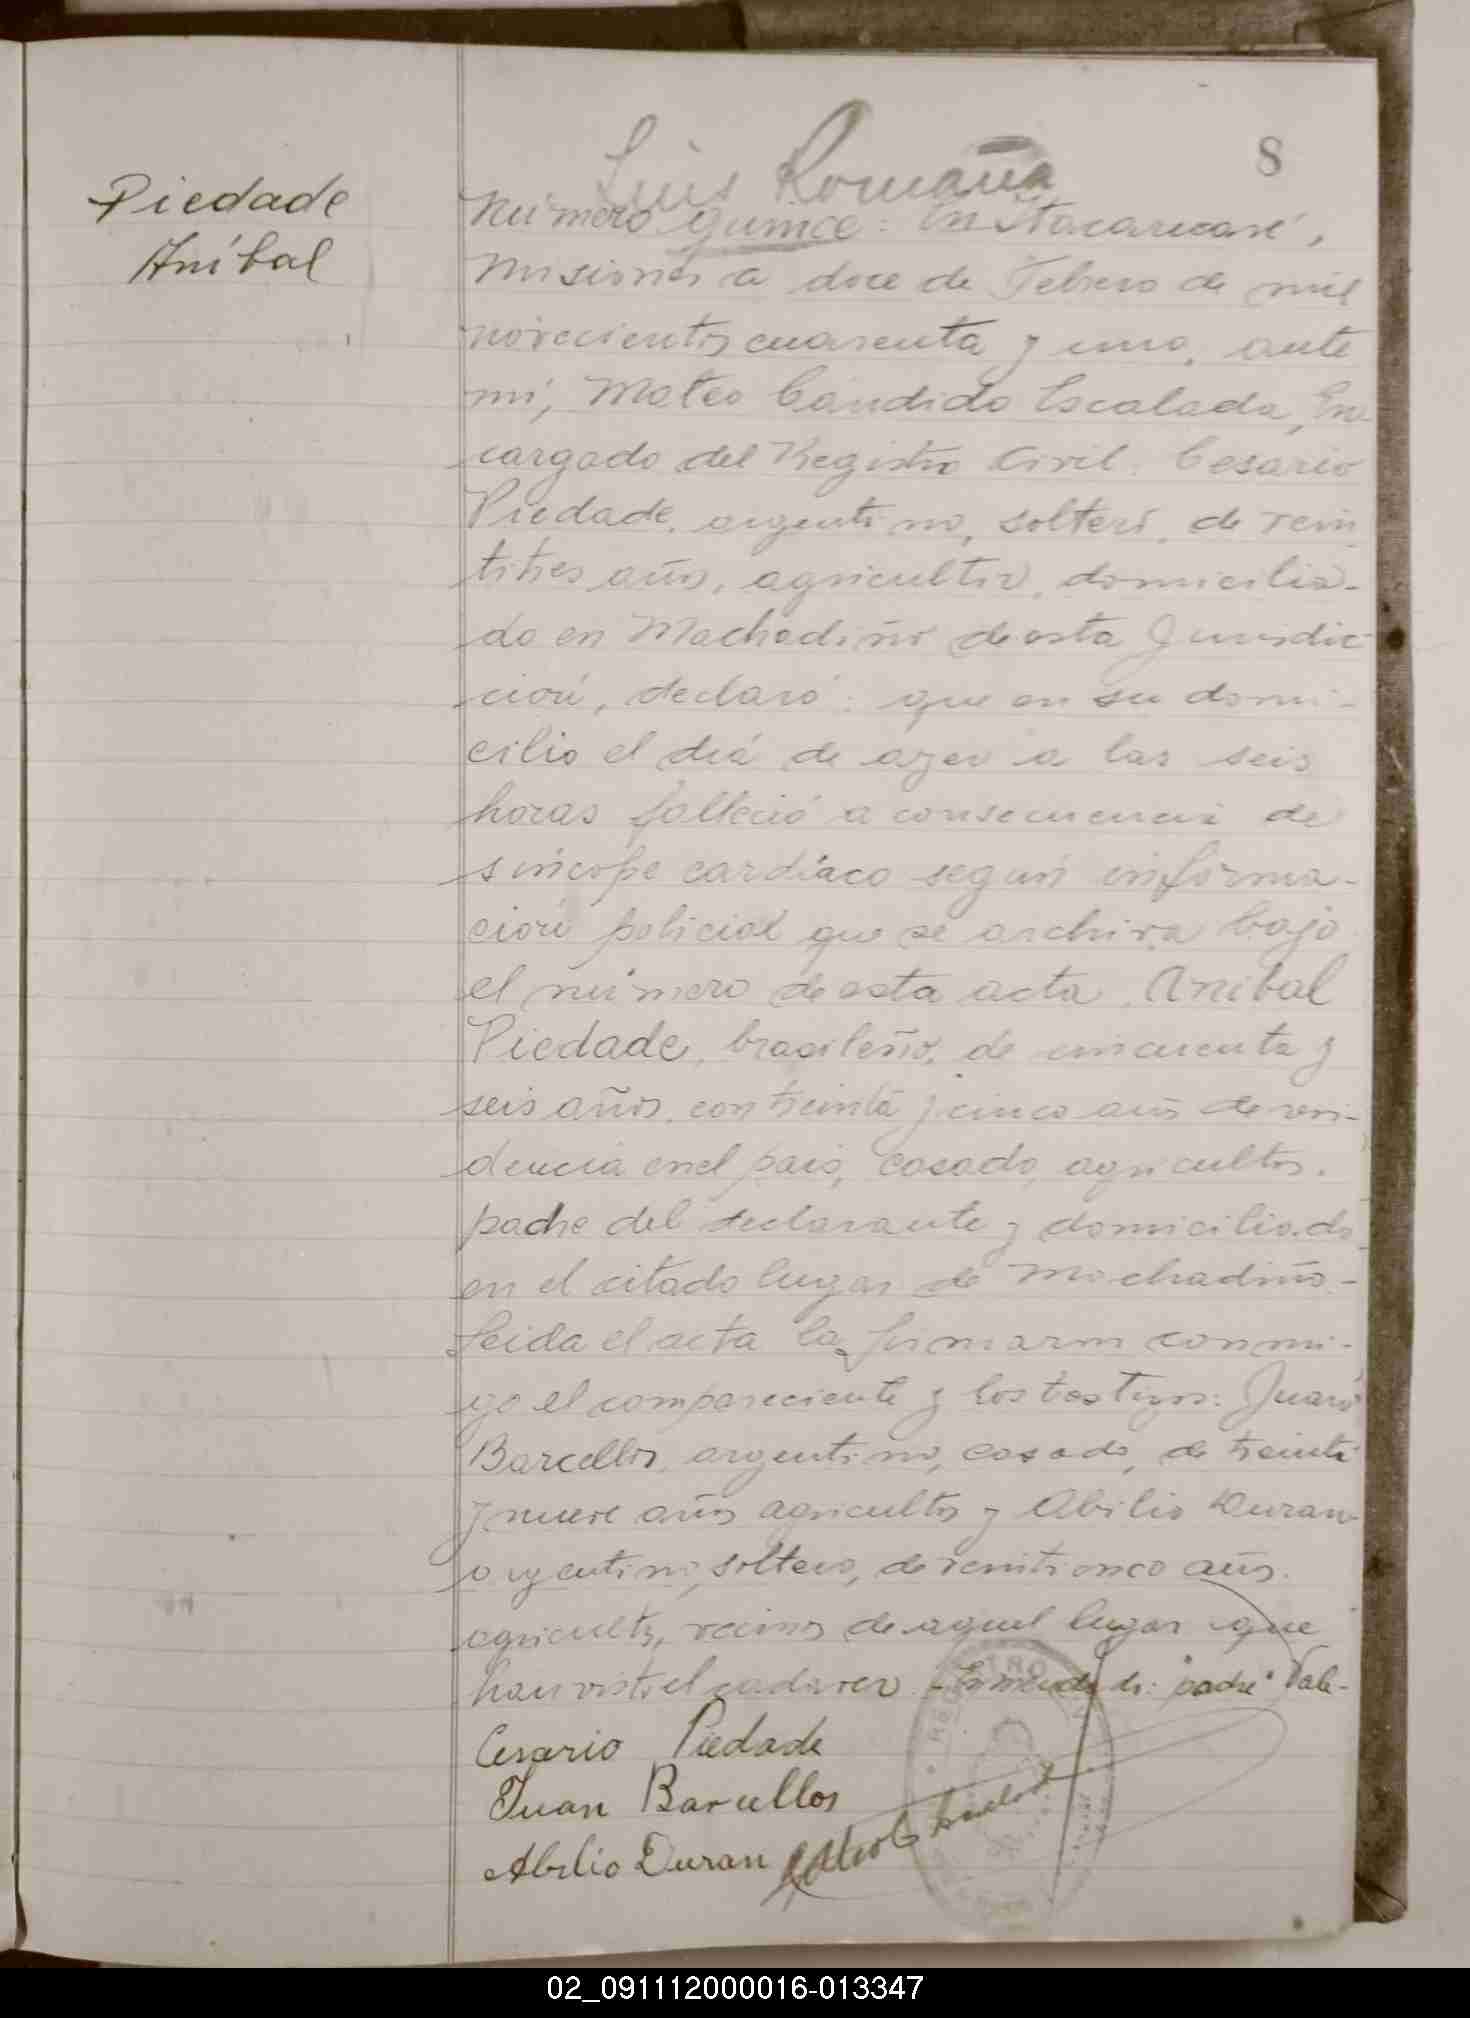 8
Luis Romaña
Piedade
Aníbal
Número quince: En Itacaruaré,
Misiones a doce de Febrero de mil
novecientos cuarenta y uno, ante
mí, Mateo Cándido Escalada, En
cargado del Registro Civil: Cesario
Piedade, argentino, soltero, de vein
titres años, agricultor, domicilia-
do en Machadiño de esta Jurisdic
ción, declaró: que en su domi-
cilio el diá de ayer a las seis
horas falleció a consecuencia de
síncope cardíaco según informa-
ción policial que se archiva bajo
el número de esta acta, Aníbal
Piedade, brasileño, de cincuenta y
seis años, con treinta y cinco años de resi-
dencia en el país, casado, agricultor,
padre del declarante y domiciliado
en el citado lugar de Machadiño.-
Leida el acta la firmaron conmi-
go el compareciente y los testigos: Juan
Barcellos, argentino, casado, de treinta
y nueve años agricultor y Abilio Duran
argentino, soltero, de veinticinco años.
agricultor, vecinos de aquel lugar que
han visto el cadaver.- Enmendado: "padre" Vale-
Cesario Piedade
Juan Barcellos
Abilio Duran
REGISTRO
02_091112000016-013347